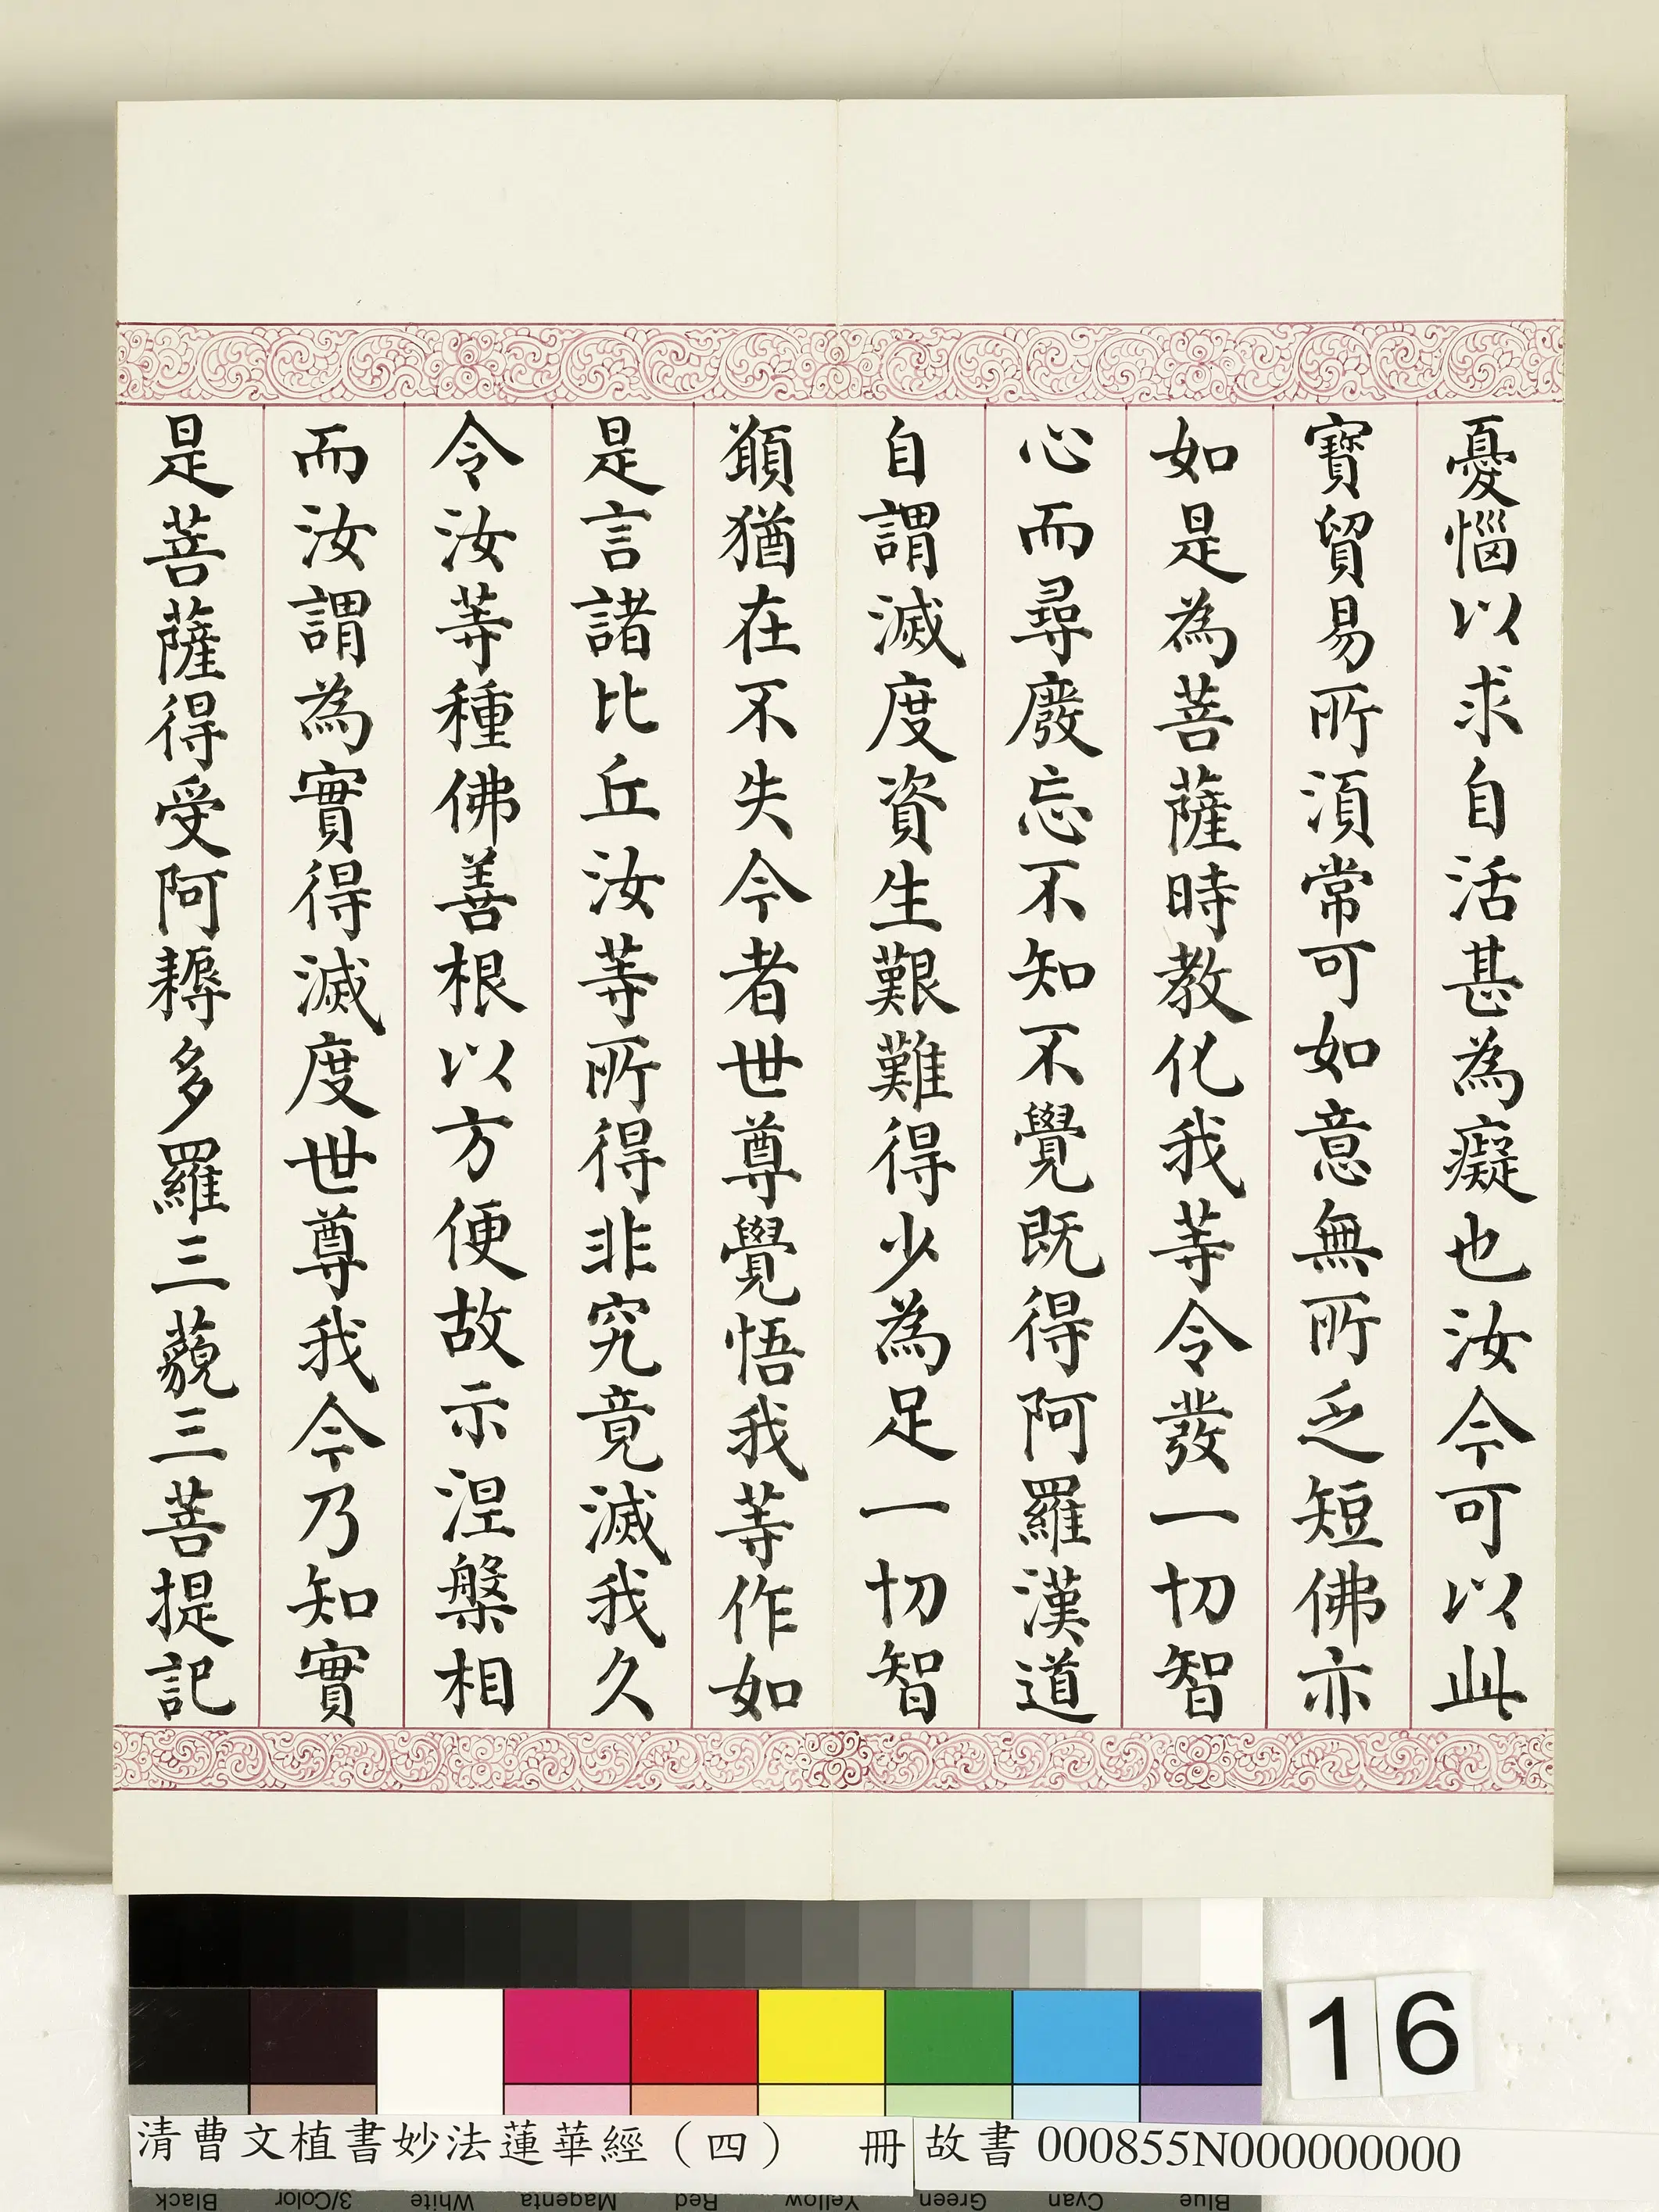 憂惱以求自活甚為癡也汝今可以此
寶貿易所須常可如意無所乏短佛亦
如是為菩薩時教化我等令發一切智
心而尋廢忘不知不覺既得阿羅漢道
自謂滅度資生艱難得少為足一切智
願猶在不失今者世尊覺悟我等作如
是言諸比丘汝等所得非究竟滅我久
令汝等種佛善根以方便故示涅槃相
而汝謂為實得滅度世尊我今乃知實
是菩薩得受阿耨多羅三藐三菩提記
16
清曹文植書妙法蓮華經(四) 冊
故書 000855N000000000
Black 3/Color White Magenta Red Yellow Green Cyan Blue